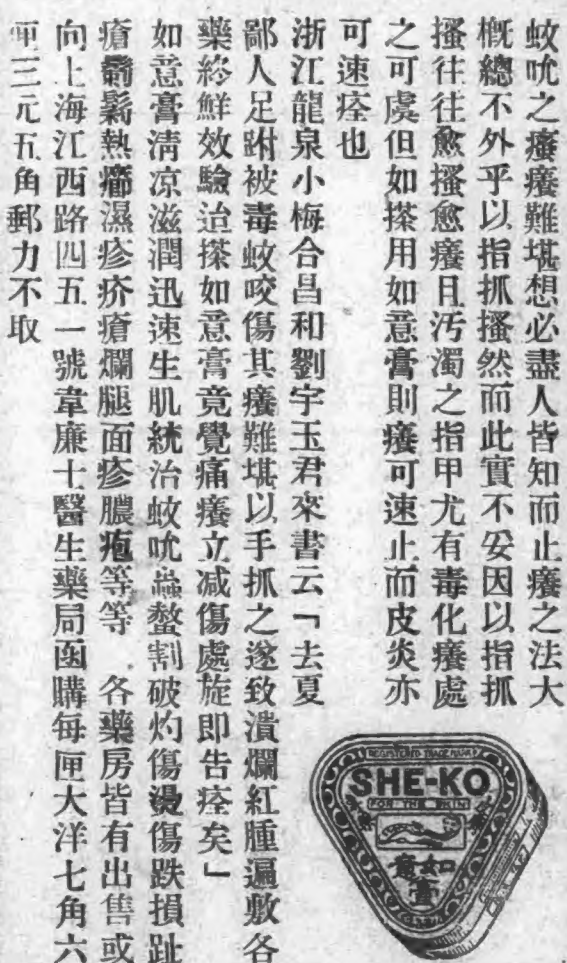 蚊吮之癢癢難堪想必盡人皆知而止癢之法大
概總不外乎以指抓搔然而此實不妥因以指抓
搔往往愈搔愈癢且汚濁之指甲尤有毒化癢處
之可虞但如搽用如意膏則癢可速止而皮炎亦
可速痊也
浙江龍泉小梅合昌和劉宇玉君來書云「去夏
鄙人足跗被毒蚊咬傷其癢難堪以手抓之遂致潰爛紅腫遍敷各
藥終鮮效驗迨搽如意膏竟覺痛癢立减傷處旋即告痊矣」
如意膏淸凉滋潤迅速生肌統治蚊吮蟲螫割破灼傷燙傷跌損趾
瘡髒鬎熱癤濕疹疥瘡爛腿面疹膿疱等等 各藥房皆有出售或
向上海江西路四五一號韋廉士醫生藥局函購每匣大洋七角六
匣三元五角郵力不取
REGISTERED TRADE MARK
SHE-KO
FOR THE SKIN
如意膏